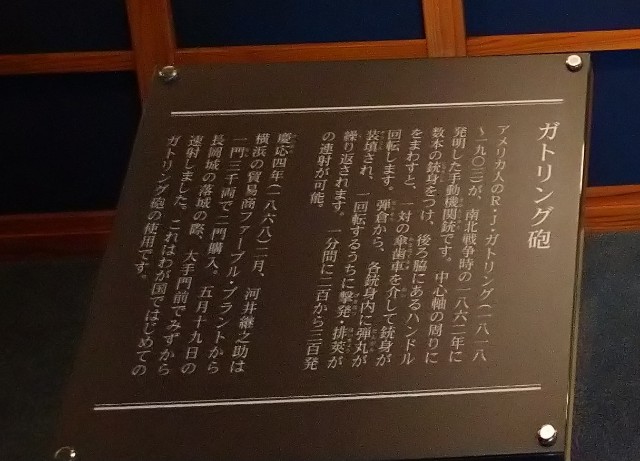 ガトリング砲
アメリカ人のR・J・ガトリング(一八一八
～一九〇三)が、南北戦争時の一八六二年に
発明した手動機関銃です。中心軸の周りに
数本の銃身をつけ、後ろ脇にあるハンドル
をまわすと、一対の傘歯車を介して銃身が
回転します。弾倉から、各銃身内に弾丸が
装填され、一回転するうちに撃発、排莢が
繰り返されます。一分間に二百から三百発
の連射が可能。
慶応四年(一八六八)二月、河井継之助は
横浜の貿易商ファーブル・ブラントから
一門三千両で二門購入。五月十九日の
長岡城の落城の際、大手門前でみずから
速射しました。これはわが国ではじめての
ガトリング砲の使用です。